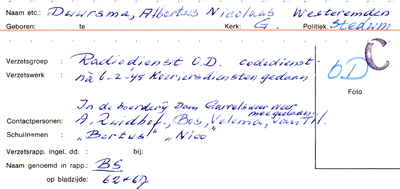 Naam etc.: Duursma, Albertus Nicolaas Westeremden
Geboren: te Kerk: G. Politiek: Stedum
Verzetsgroep : Radiodienst O.D. Codedienst
Verzetswerk : nà 6-2-45 Koeriersdiensten gedaan
O.D. C
Foto
In de boerderij Dam Garrelsweer weer
meegedaan.
Contactpersonen: A. Zuidhof, Bos, Velema, van Til.
Schuilnamen : "Bertus" "Nico"
Verzetsrapp. ingel. dd. : bij:
Naam genoemd in rapp.: BS
op bladzijde: 62+67